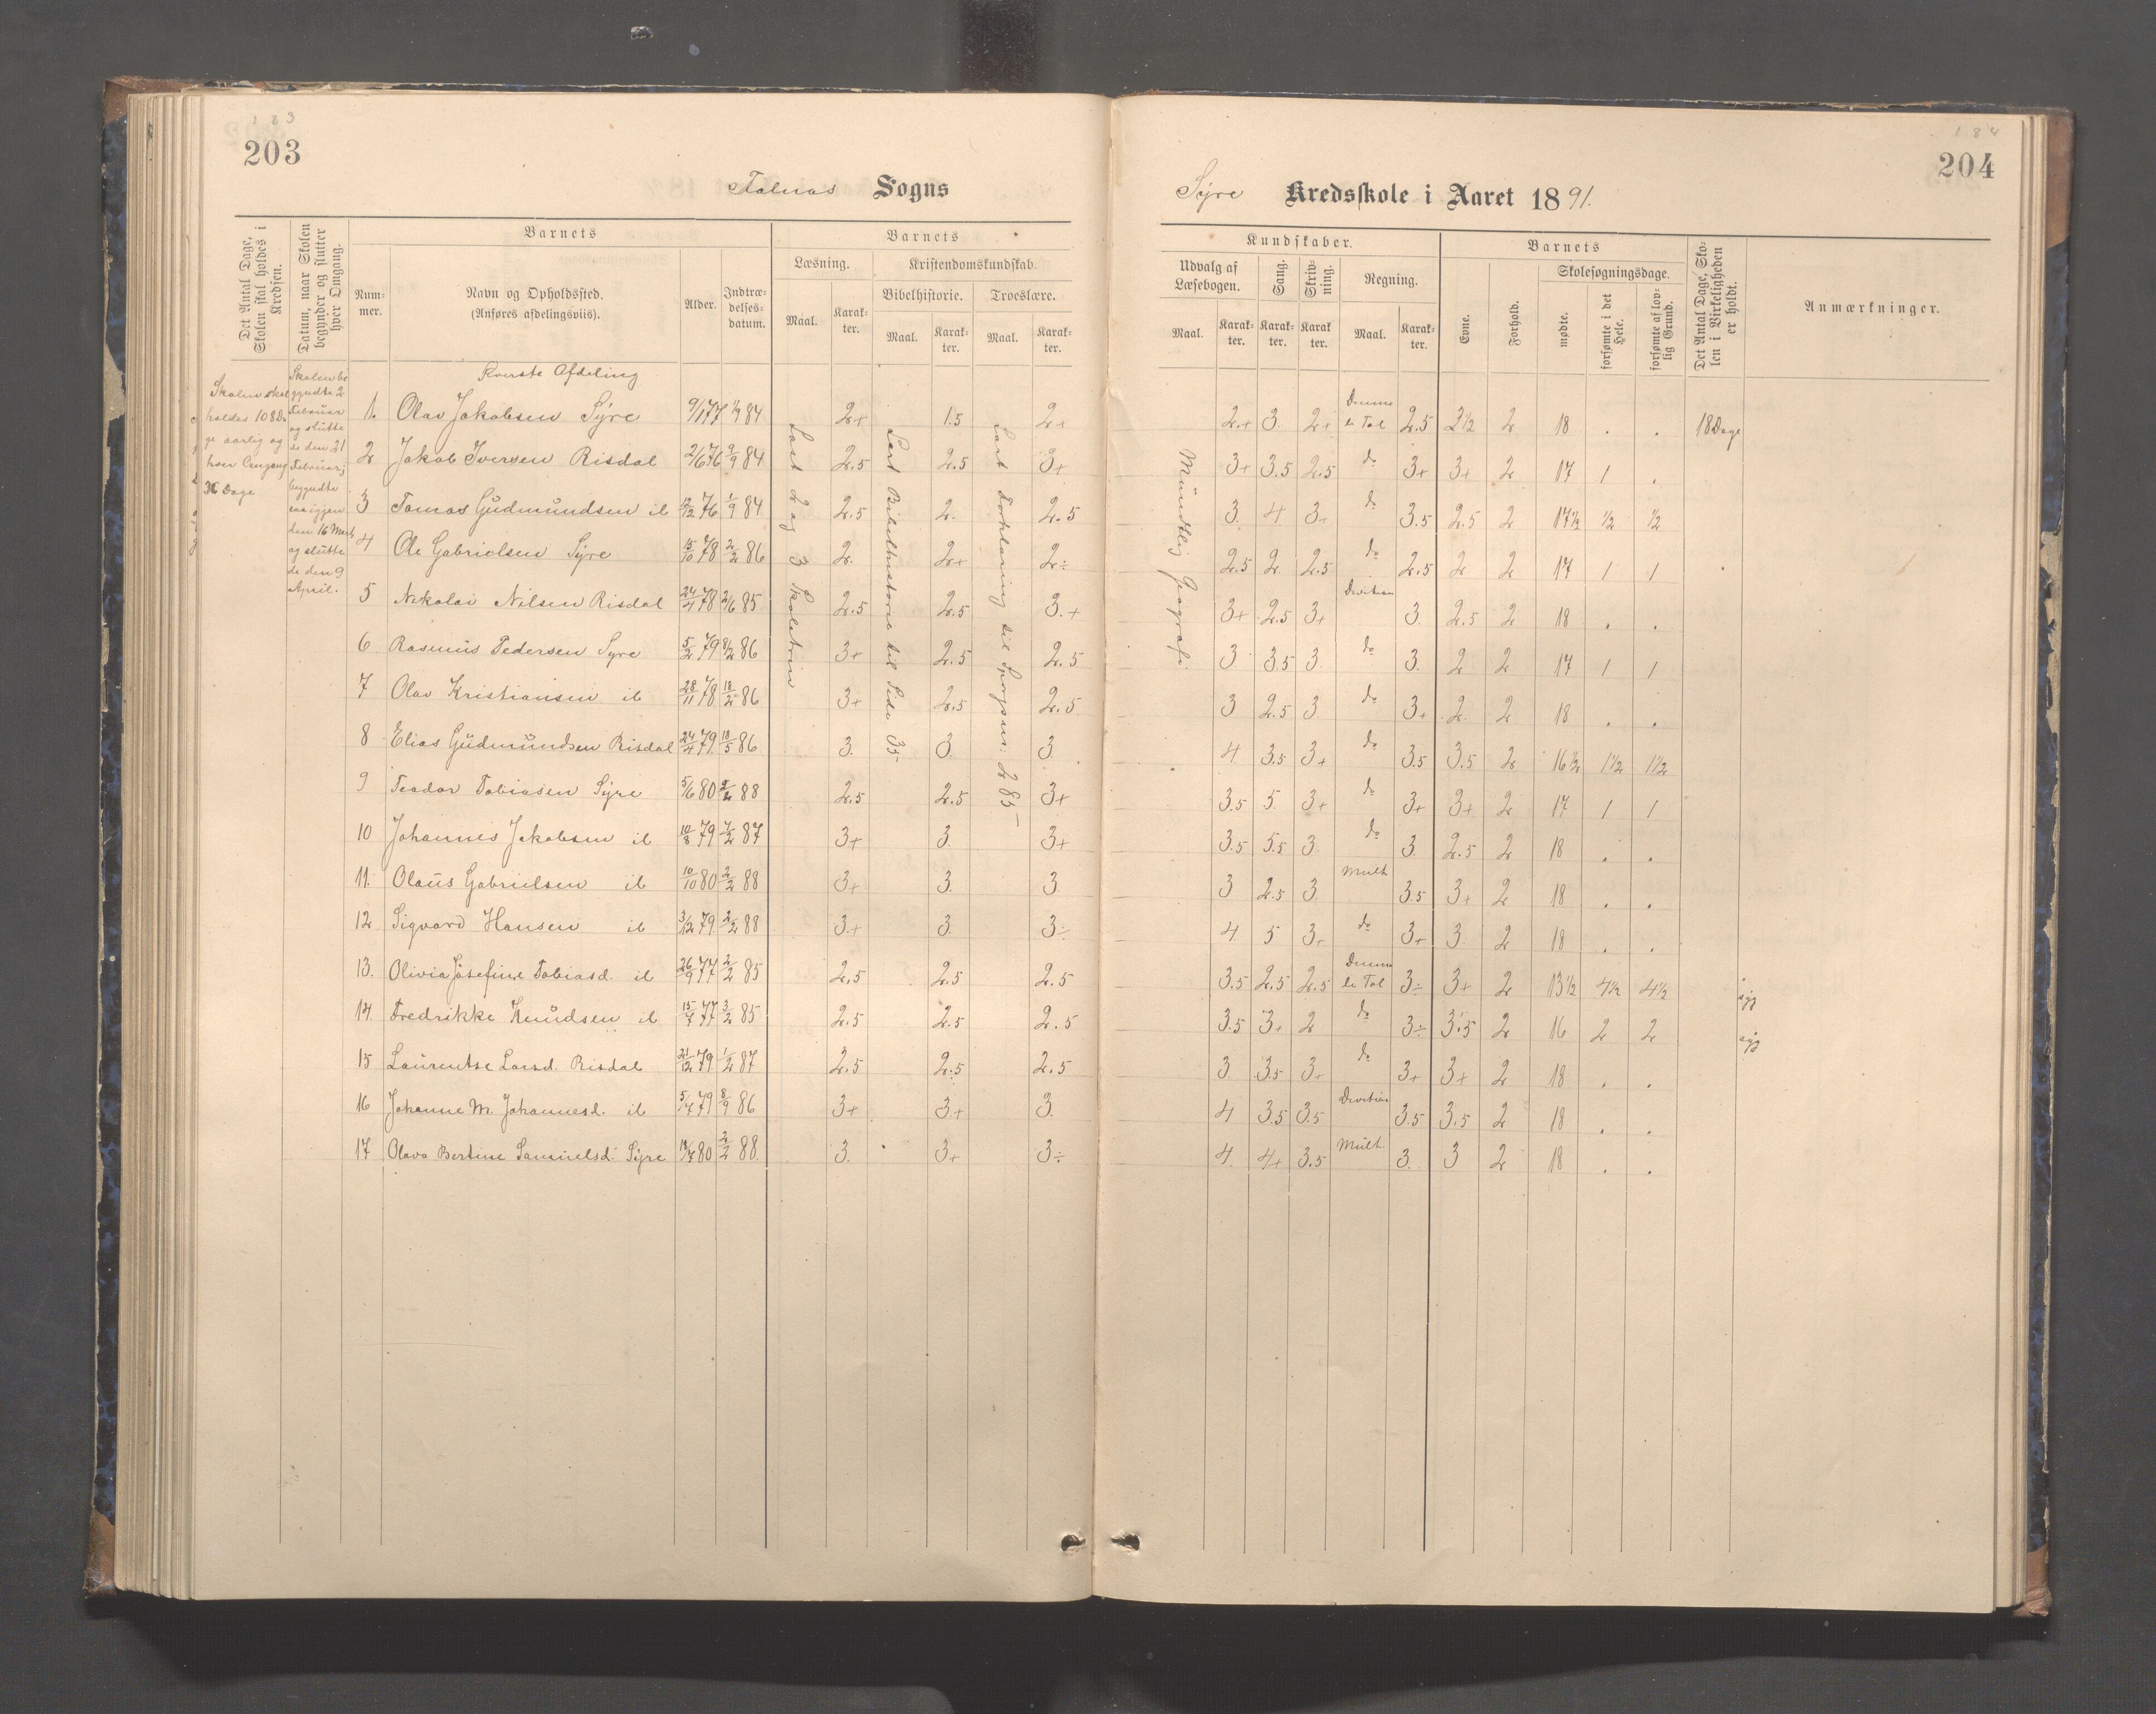 183
203
Falnas Sogns
Det Antal Dage, Skolen skal holdes i Kredsen.
Datum, naar Skolen begynder og slutter hver Omgang.
Barnets
Num-
mer.
Navn og Opholdssted.
(Anføres afdelingsviis).
Alder.
Indtræ-
delses-
datum.
Barnets
Læsning.
Maal.
Karak-
ter.
Kristendomskundskab.
Bibelhistorie.
Maal.
Karak-
ter.
Troeslære.
Maal.
Karak-
ter.
Skolen skal
holdes 108 Da
ge aarlig og
hver Omgang
36 Dage
Skolen be
gyndte 2
Februar
og slutte
de den 21
Februar;
begyndte
igjen
den 16 Marts
og slutte
de den 9
April.
Øverste Afdeling
Læst 2 og 3 Skoletrin
Læst Bibelhistorie til Side 35
Læst Forklaring til Spørgsm: 285
1. Olav Jakobsen Syre 9/1 77 1/9 84 2+ 1.5 2+
2 Jakob Iversen Risdal 2/6 76 2/9 84 2.5 2.5 3+
3 Tomas Gudmundsen ib 12/12 76 1/9 84 2.5 2. 2.5
4 Ole Gabrielsen Syre 15/10 78 2/2 86 2. 2+ 2÷
5 Nikolai Nilsen Risdal 24/4 78 2/6 85 2.5 2.5 3.+
6 Rasmus Pedersen Syre 5/2 79 8/2 86 3+ 2.5 2.5
7 Olav Kristiansen ib 28/11 78 18/2 86 3+ 2.5 2.5
8 Elias Gudmundsen Risdal 24/4 79 18/5 86 3. 3. 3.
9 Teodor Tobiasen Syre 5/6 80 2/2 88 2.5 2.5 3+
10 Johannes Jakobsen ib 10/8 79 7/2 87 3+ 3. 3+
11. Olaus Gabrielsen ib 10/10 80 2/2 88 3+ 3. 3
12 Sigvard Hansen ib 3/12 79 2/2 88 3+ 3. 3÷
13. Olivia Josefine Tobiasd. ib 26/9 77 2/2 85 2.5 2.5 2.5
14. Fredrikke Knudsen ib 15/7 77 3/2 85 2.5 2.5 2.5
15 Laurentse Larsd. Risdal 21/12 79 1/2 87 2.5 2.5 2.5
16 Johanne M. Johannesd. ib 5/7 79 8/9 86 3+ 3+ 3.
17 Olava Bertine Samuelsd. Syre 13/7 80 2/2 88. 3. 3+ 3÷
184
204
Syre Kredsskole i Aaret 1891.
Kundskaber.
Udvalg af
Læsebogen.
Maal.
Karak-
ter.
Sang.
Karak-
ter.
Skriv-
ning.
Karak
ter.
Regning.
Maal.
Karak-
ter.
Barnets
Evne.
Forhold.
Skolesøgningsdage.
mødte.
forsømte i det
Hele.
forsømte af lov-
lig Grund.
Det Antal Dage, Sko-
len i Virkeligheden
er holdt.
Anmærkninger.
Mundtlig Geografi
2.+ 3. 2+ 2.5 2½ 2 18 . . 18 Dage
3+ 3.5 2.5 do 3+ 3+ 2 17 1 .
3. 4 3+ do 3.5 2.5 2 17½ ½ ½
2.5 2. 2.5 do 2.5 2 2 17 1 1
3+ 2.5 3+ Division 3. 2.5 2 18 . .
3. 3.5 3. do 3. 2 2 17 1 1
3 2.5 3. do 3+ 2. 2 18 . .
4 3.5 3+ do 3.5 3.5 2 16½ 1½ 1½
3.5 5. 3+ do 3+ 3+ 2 17 1 1
3.5 5.5 3. do 3. 2.5 2 18 . .
3 2.5 3. Mult 3.5 3+ 2 18 . .
4 5 3+ do 3+ 3. 2 18 . .
3.5 2.5 2.5 3÷ 3+ 2 13½ 4½ 4½ syg
3.5 3+ 2 do 3÷ 3.5 2 16 2 2 syg
3. 3.5 3+ do 3+ 3+ 2 18 . .
4 3.5 3.5 Division 3.5 3.5 2 18 . .
4. 4+ 3.5 Mult. 3. 3 2 18 . .